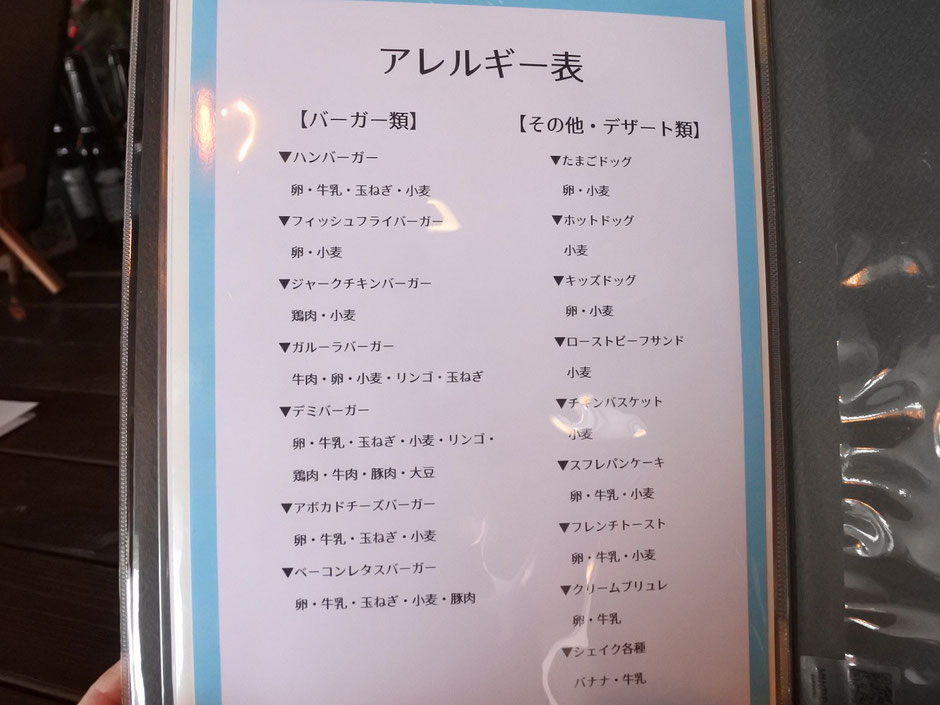 アレルギー表
【バーガー類】
▼ハンバーガー
卵・牛乳・玉ねぎ・小麦
▼フィッシュフライバーガー
卵・小麦
▼ジャークチキンバーガー
鶏肉・小麦
▼ガルーラバーガー
牛肉・卵・小麦・リンゴ・玉ねぎ
▼デミバーガー
卵・牛乳・玉ねぎ・小麦・リンゴ・
鶏肉・牛肉・豚肉・大豆
▼アボカドチーズバーガー
卵・牛乳・玉ねぎ・小麦
▼ベーコンレタスバーガー
卵・牛乳・玉ねぎ・小麦・豚肉
【その他・デザート類】
▼たまごドッグ
卵・小麦
▼ホットドッグ
小麦
▼キッズドッグ
卵・小麦
▼ローストビーフサンド
小麦
▼チキンバスケット
小麦
▼スフレパンケーキ
卵・牛乳・小麦
▼フレンチトースト
卵・牛乳・小麦
▼クリームブリュレ
卵・牛乳
▼シェイク各種
バナナ・牛乳